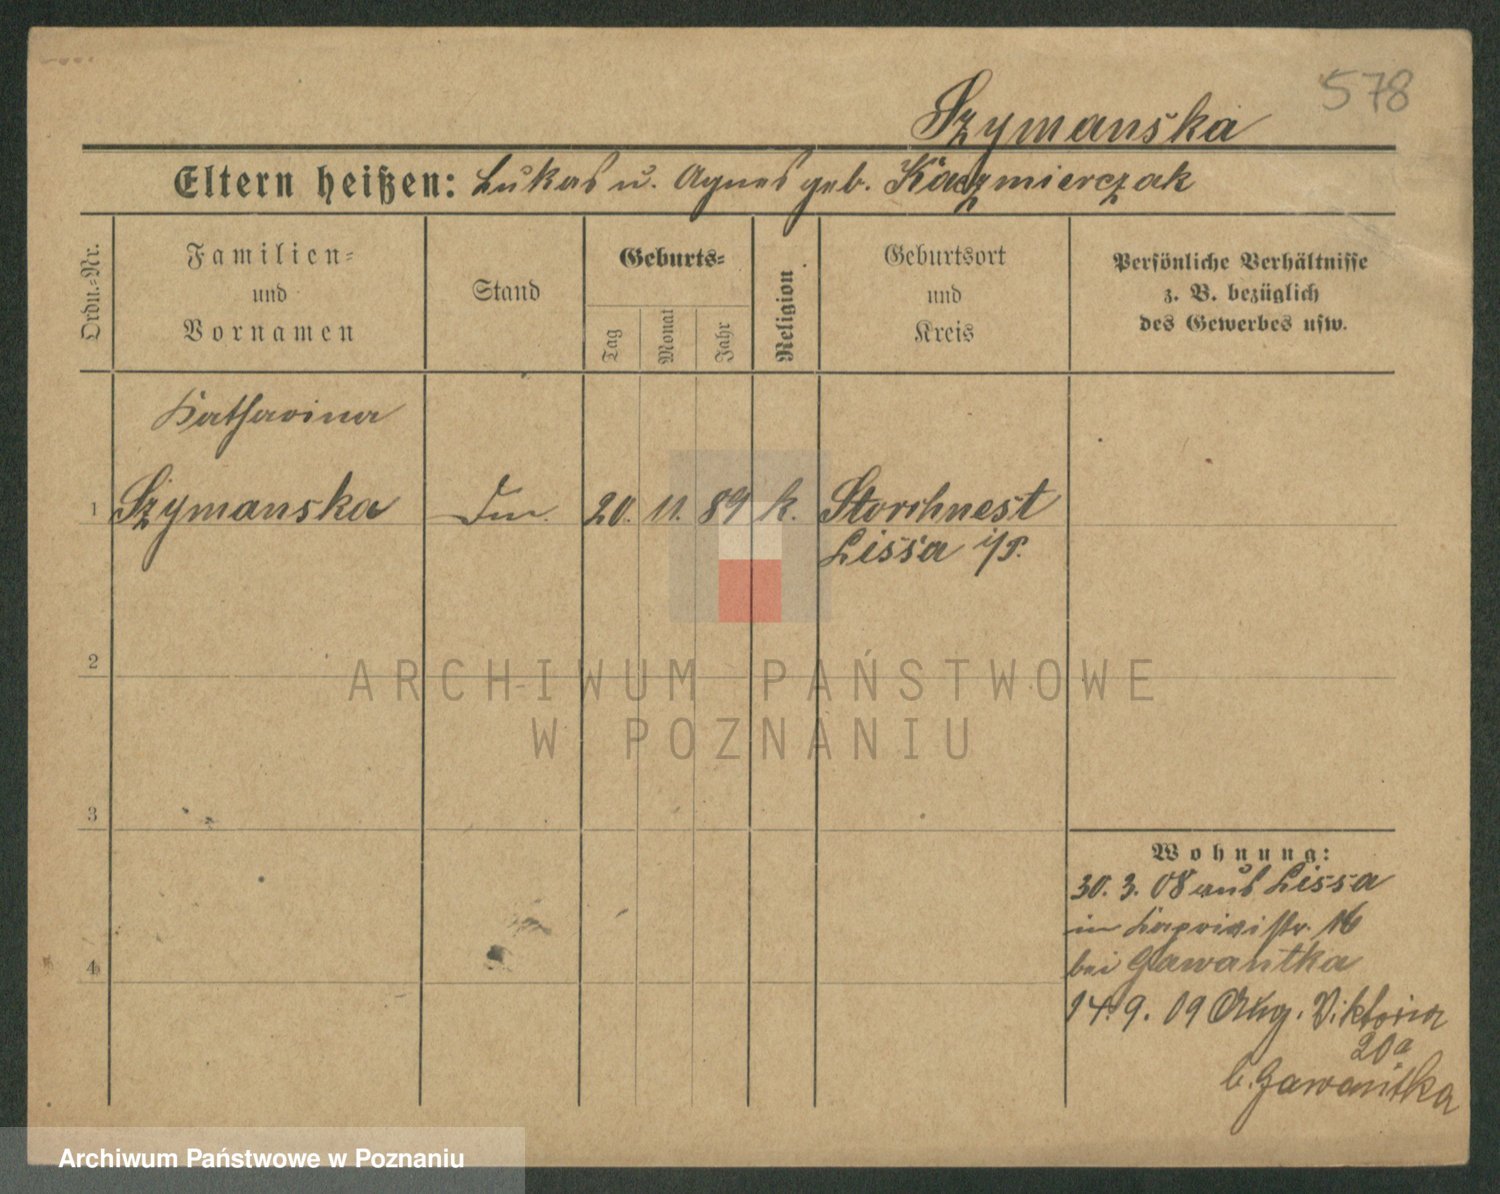 578
Szymanska
Eltern heißen: Lukas u. Agnes geb. Kaczmierczak
Ordn.-Nr.
Familien-
und
Vornamen
Stand
Geburts-
Tag
Monat
Jahr
Religion
Geburtsort
und
Kreis
Persönliche Verhältnisse
z. B. bezüglich
des Gewerbes usw.
Katharina
1 Szymanska 20. 11. 89 k. Storchnest
Lissa i/P.
2
ARCHIWUM PAŃSTWOWE
W POZNANIU
3
Wohnung:
30. 3. 08 aus Lissa
in Caprivistr. 16
bei Gawantka
4
14. 9. 09 Viktoria
20a
b. Gawantka
Archiwum Państwowe w Poznaniu